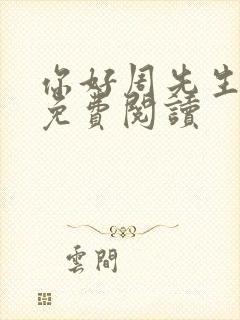 你好周先生
免費閱讀
雲間